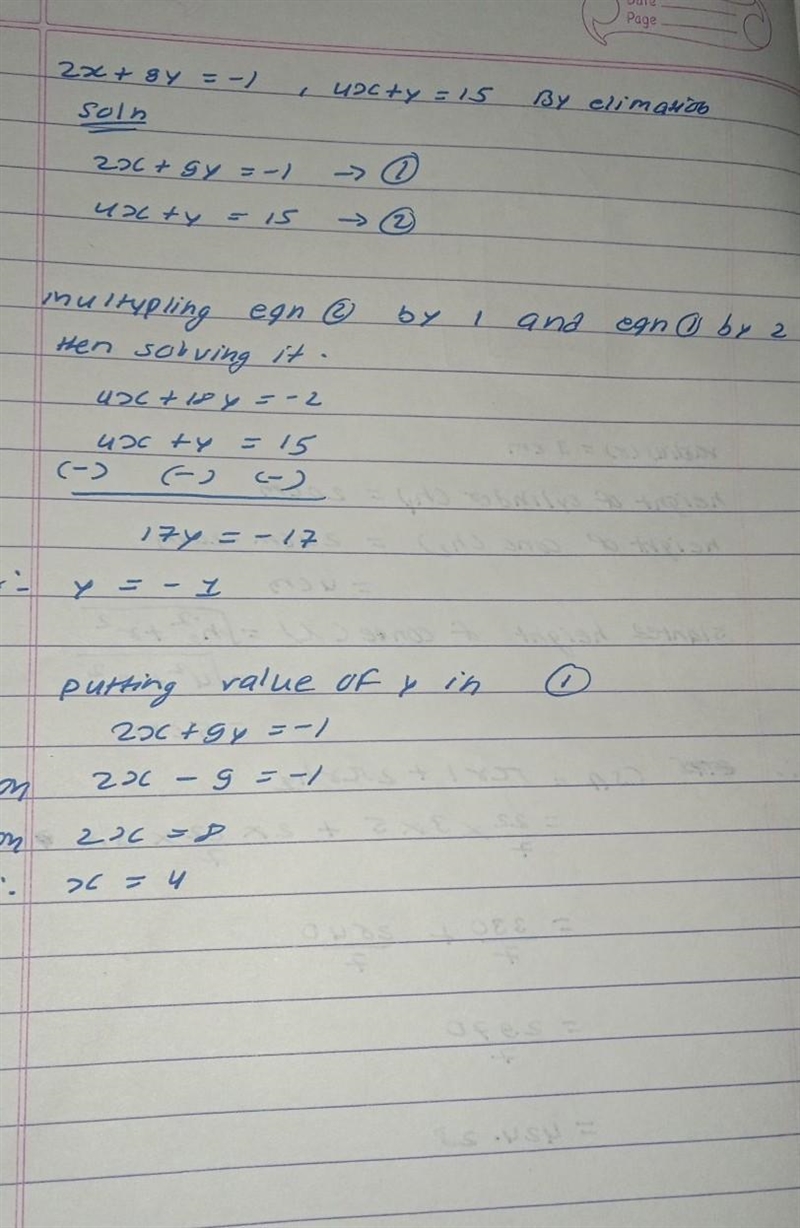 Page
2x + 9y = -1 , 4x+y = 15 By elimation
Soln
2x + 9y = -1 → ①
4x + y = 15 → ②
multypling eqn ② by 1 and eqn ① by 2
then solving it.
4x + 18y = -2
4x + y = 15
(-) (-) (-)
17y = -17
∴ y = -1
putting value of y in ①
2x + 9y = -1
2x - 9 = -1
2x = 8
x = 4